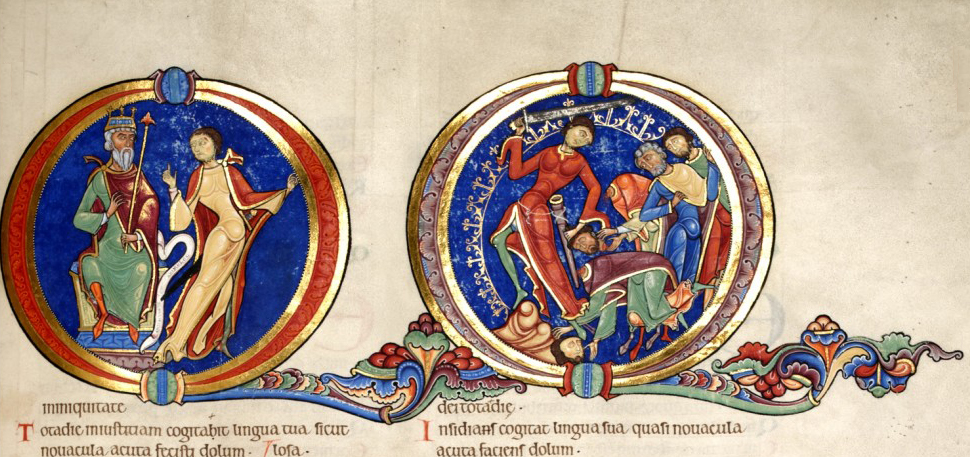 ininiquitate
Totadie iniustitiam cogitabit lingua tua sicut
nouacula acuta fecisti dolum. losa.
dei totadie
Insidians cogitat lingua sua quasi nouacula
acuta faciens dolum.